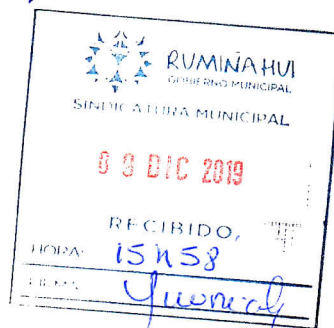 RUMIÑAHUI
GOBIERNO MUNICIPAL
SINDICATURA MUNICIPAL
09 DIC 2019
RECIBIDO,
HORA: 15H58
FIRMA: